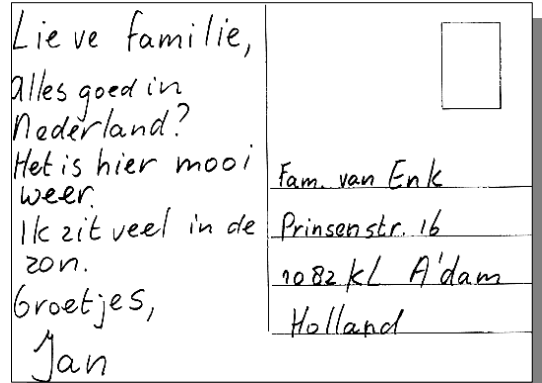 Lieve familie,
alles goed in
Nederland?
Het is hier mooi
weer.
Ik zit veel in de
zon.
Groetjes,
Jan
Fam. van Enk
Prinsenstr. 16
1082 KL A'dam
Holland